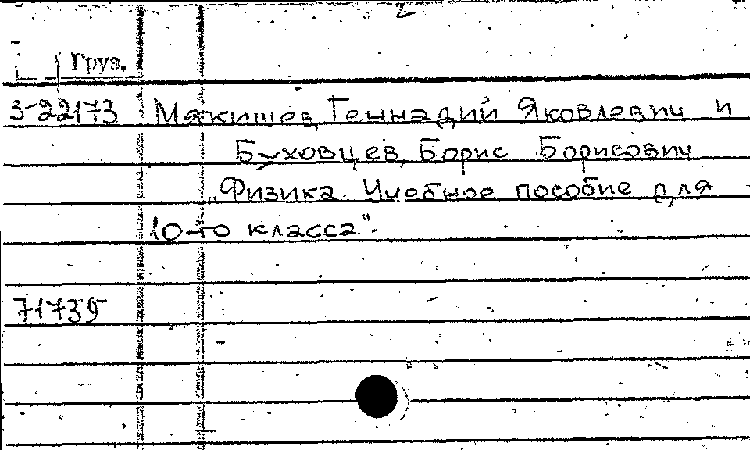 Груз.
3-22173 Мякишев, Геннадий Яковлевич и
Буховцев, Борис Борисович
„Физика. Учебное пособие для
10-го класса".
71739